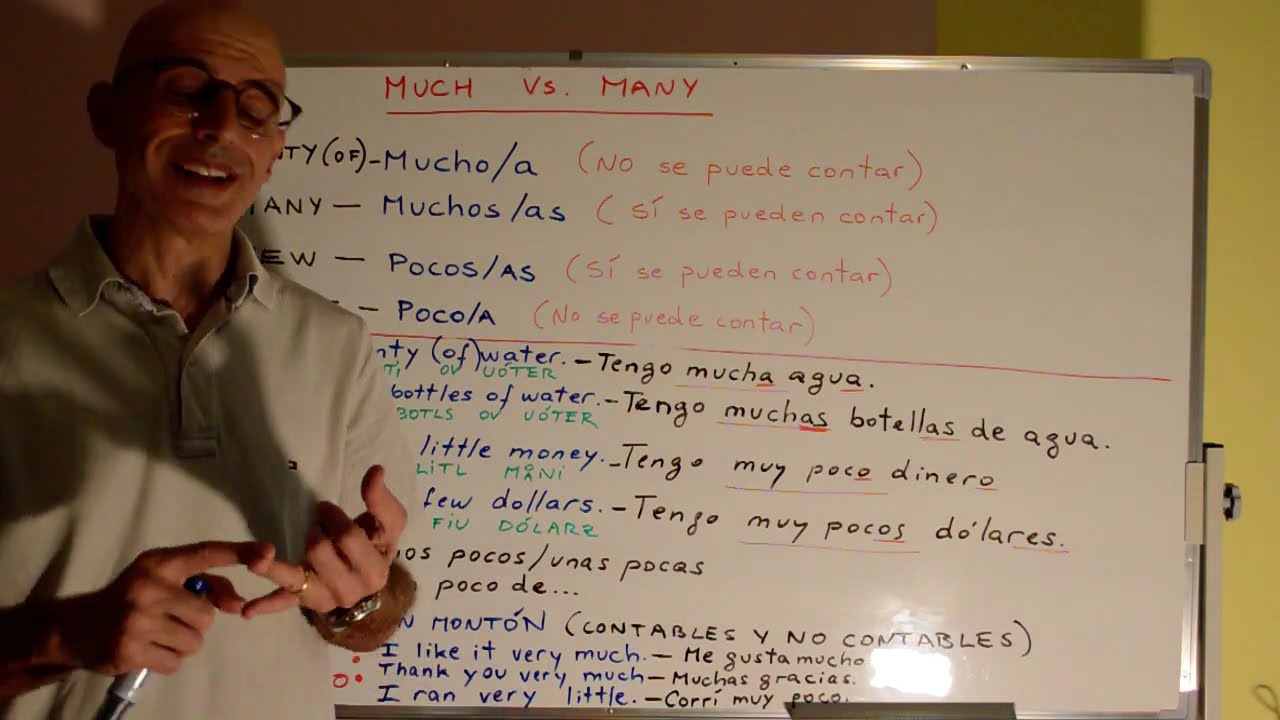 MUCH Vs. MANY
TY(OF)-Mucho/a (No se puede contar)
MANY - Muchos/as (Sí se pueden contar)
EW - Pocos/As (Sí se pueden contar)
- Poco/A (No se puede contar)
nty (of) water. - Tengo mucha agua.
TI OV UÓTER
bottles of water. - Tengo muchas botellas de agua.
BOTLS OV UÓTER
little money. - Tengo muy poco dinero
LITL MANI
few dollars. - Tengo muy pocos dólares.
FIU DÓLARZ
os pocos/unas pocas
poco de...
N MONTÓN (CONTABLES Y NO CONTABLES)
I like it very much. - Me gusta mucho
Thank you very much - Muchas gracias.
I ran very little. - Corrí muy poco.